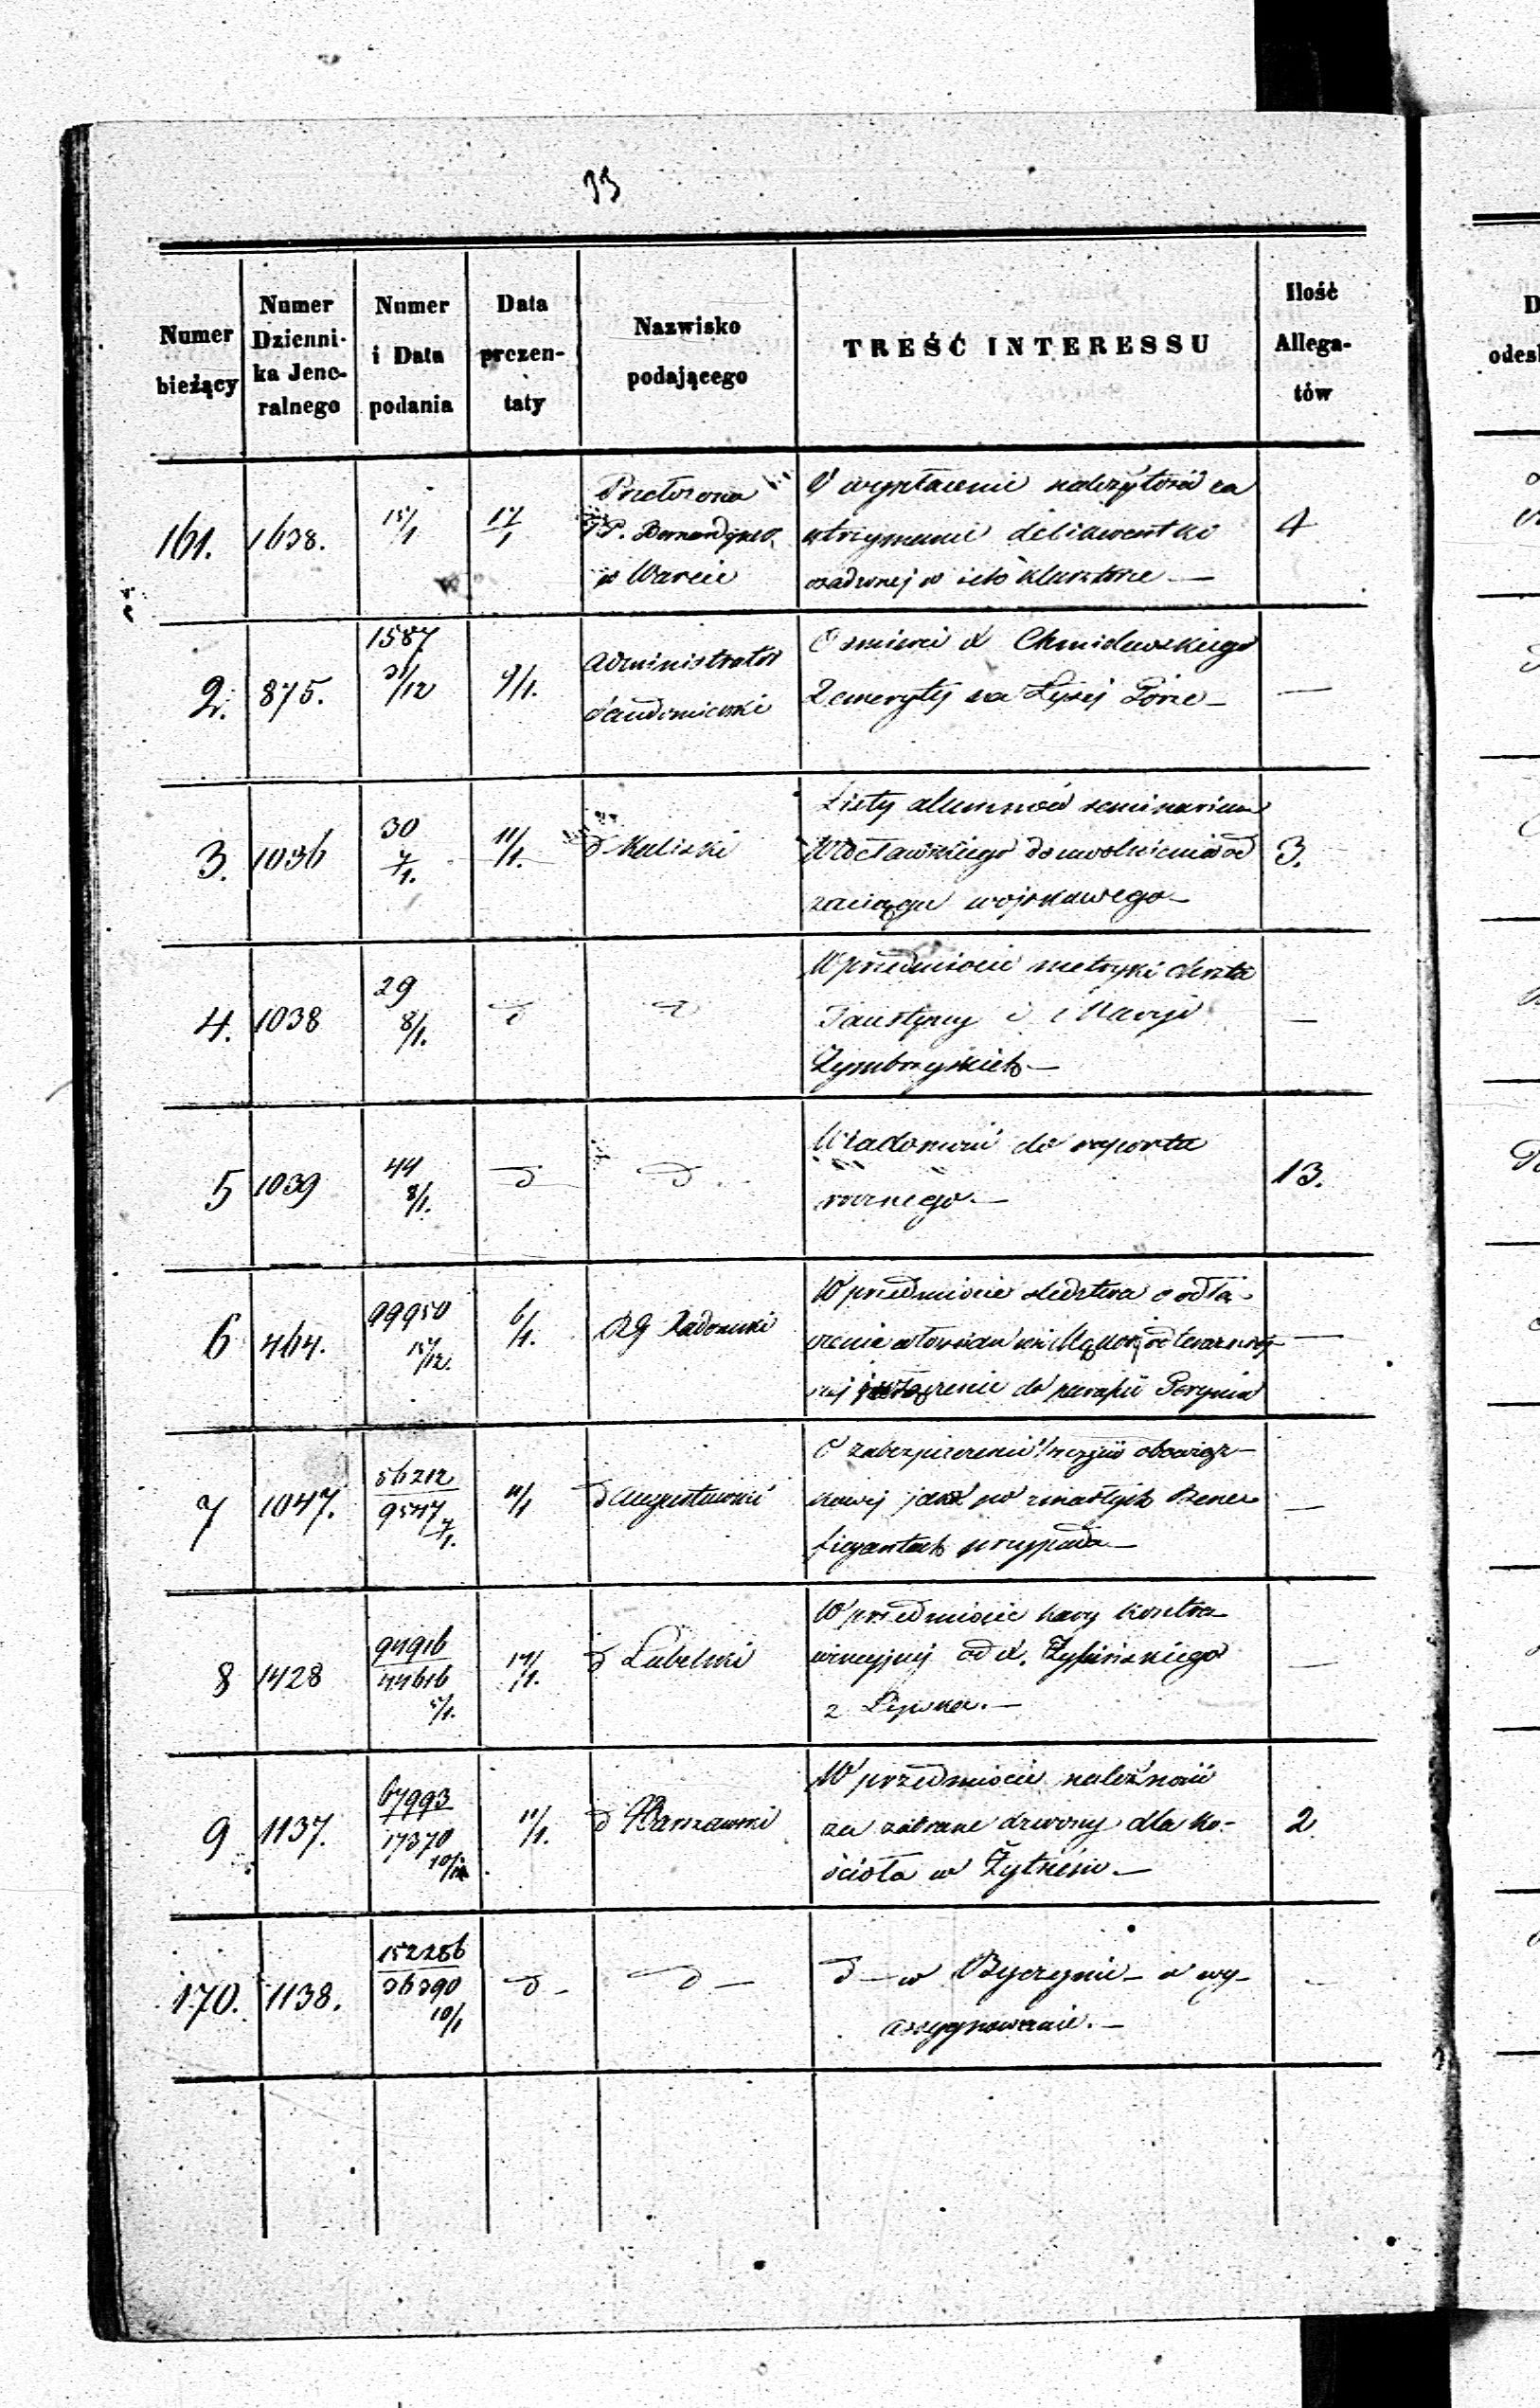 33
Numer bieżący | Numer Dzienni-ka Jene-ralnego | Numer i Data podania | Data prezen-taty | Nazwisko podającego | TREŚĆ INTERESSU | Ilość Allega-tów
161. | 1638. | 15/1 | 17/1 | Przełożona PP. Bernardynek w Warcie | O wypłacenie należytości za
utrzymanie delikwentki | 4
osadzonej w ich klasztorze —
2. | 875. | 1587 31/12 | 9/1. | Administrator Sandomierski | O śmierci X Chmielewskiego
Zemeryty na Łysej Górze — | —
3. | 1036 | 30 7/1. | 11/1. | d Kaliski | Listy alumnów seminarium
Włocławskiego do uwolnienia od | 3.
zaciągu wojskowego —
4. | 1038 | 29 8/1. | d | d | W przedmiocie metryki chrztu
Faustyny i Maryi | —
Zymbrzyskich —
5 | 1039 | 44 8/1. | d | d | Wiadomość do raportu
rocznego. — | 13.
6 | 464. | 99950 15/12. | 6/1. | RG Radomski | W przedmiocie śledztwa o odłą-
czenie włościan wsi od | —
i włączenie do parafii
7 | 1047. | 56212 9547 7/1. | 11/1 | d Augustowski | O zabezpieczenie obowiąz-
kowej jaka po zmarłych Bene- | —
ficyantach przypada —
8 | 1428 | 94916 44616 5/1. | 14/1. | d Lubelski | W przedmiocie kary kontra-
wencyjnej od X. Zylińskiego | —
z Lipska. —
9 | 1137. | 67993 17370 10/12 | 11/1. | d Warszawski | W przedmiocie należności
za zabrane dzwony dla ko- | 2.
ścioła w Żytniem —
170. | 1138. | 152286 36390 10/1 | d — | d — | d — w Byczynie — o wy- | —
assygnowanie. —
D
odesł